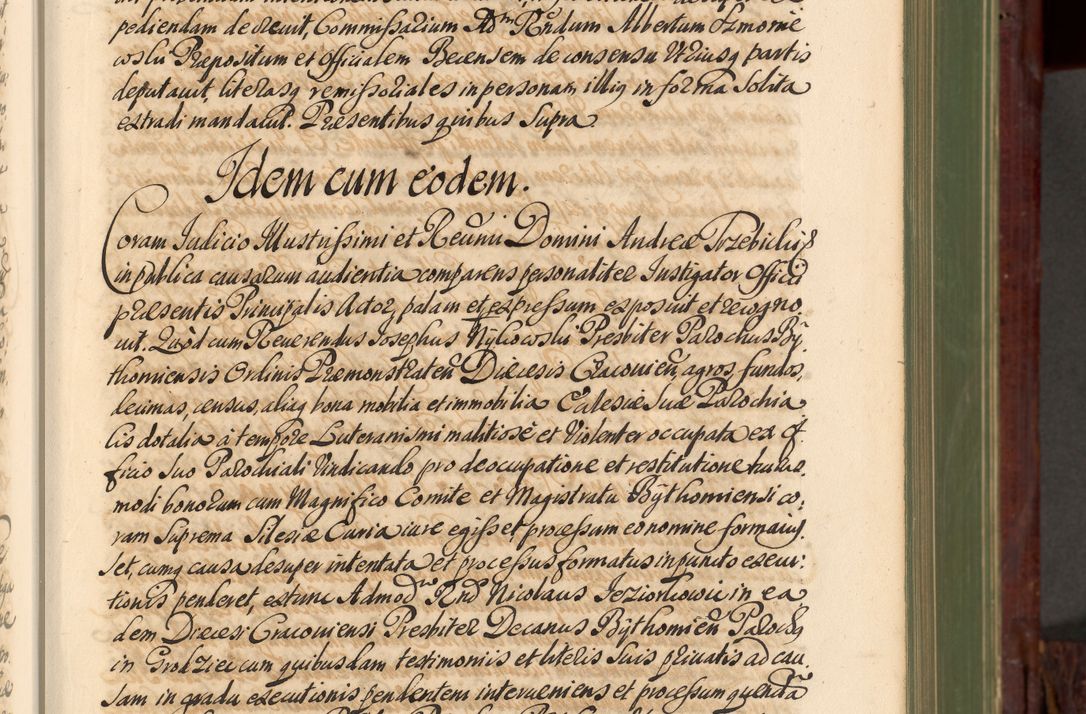 pediendam decreuit, Commissarium Adm Rndum Albertum Ozmorne
coslu Præpositum et Officialem Becensem de consensu Vtriusq partis
deputauit, literasq remissoriales in personam illiq in forma Solita
extradi mandauit. Præsentibus quibus Supra
Idem cum eodem.
Coram Iudicio Illustrissimi et Reumi Domini Andreæ Trzebickij
in publica causarum audientia comparens personaliter Instigator Officij
præsentis Principalis Actor, palam et expressum exposuit et recogno
uit. Quòd cum Reuerendus Iosephus Presbiter Parochus Bÿ,
thomiensis Ordinis Præmonstraten Diæcesis Cracouien, agros, fundos,
decimas, census, aliaq bona mobilia et immobilia Eclesiæ suæ Parochia
lis dotalia à tempore Luteranismi malitiosè et Violenter occupata ex of
ficio suo Parochiali Vindicando pro deoccupatione et restitutione huius,
modi bonorum cum Magnifico Comite et Magistratu Bÿthomiensi co,
ram Suprema Silesiæ Curia iure egisset processum eo nomine formauis
set, cumq causa desuper intentata et processus formatus in puncto execu:
tionis penderet, extunc Admod Rnd Nicolaus Jeziorkowic in ea
dem Diæcesi Cracouiensi Presbiter Decanus Bÿthomien Paroch
in Grodziec cum quibusdam testimoniis et literis suis priuatis ad cau
sam in gradu executionis pendentem interueniens et processum quendã